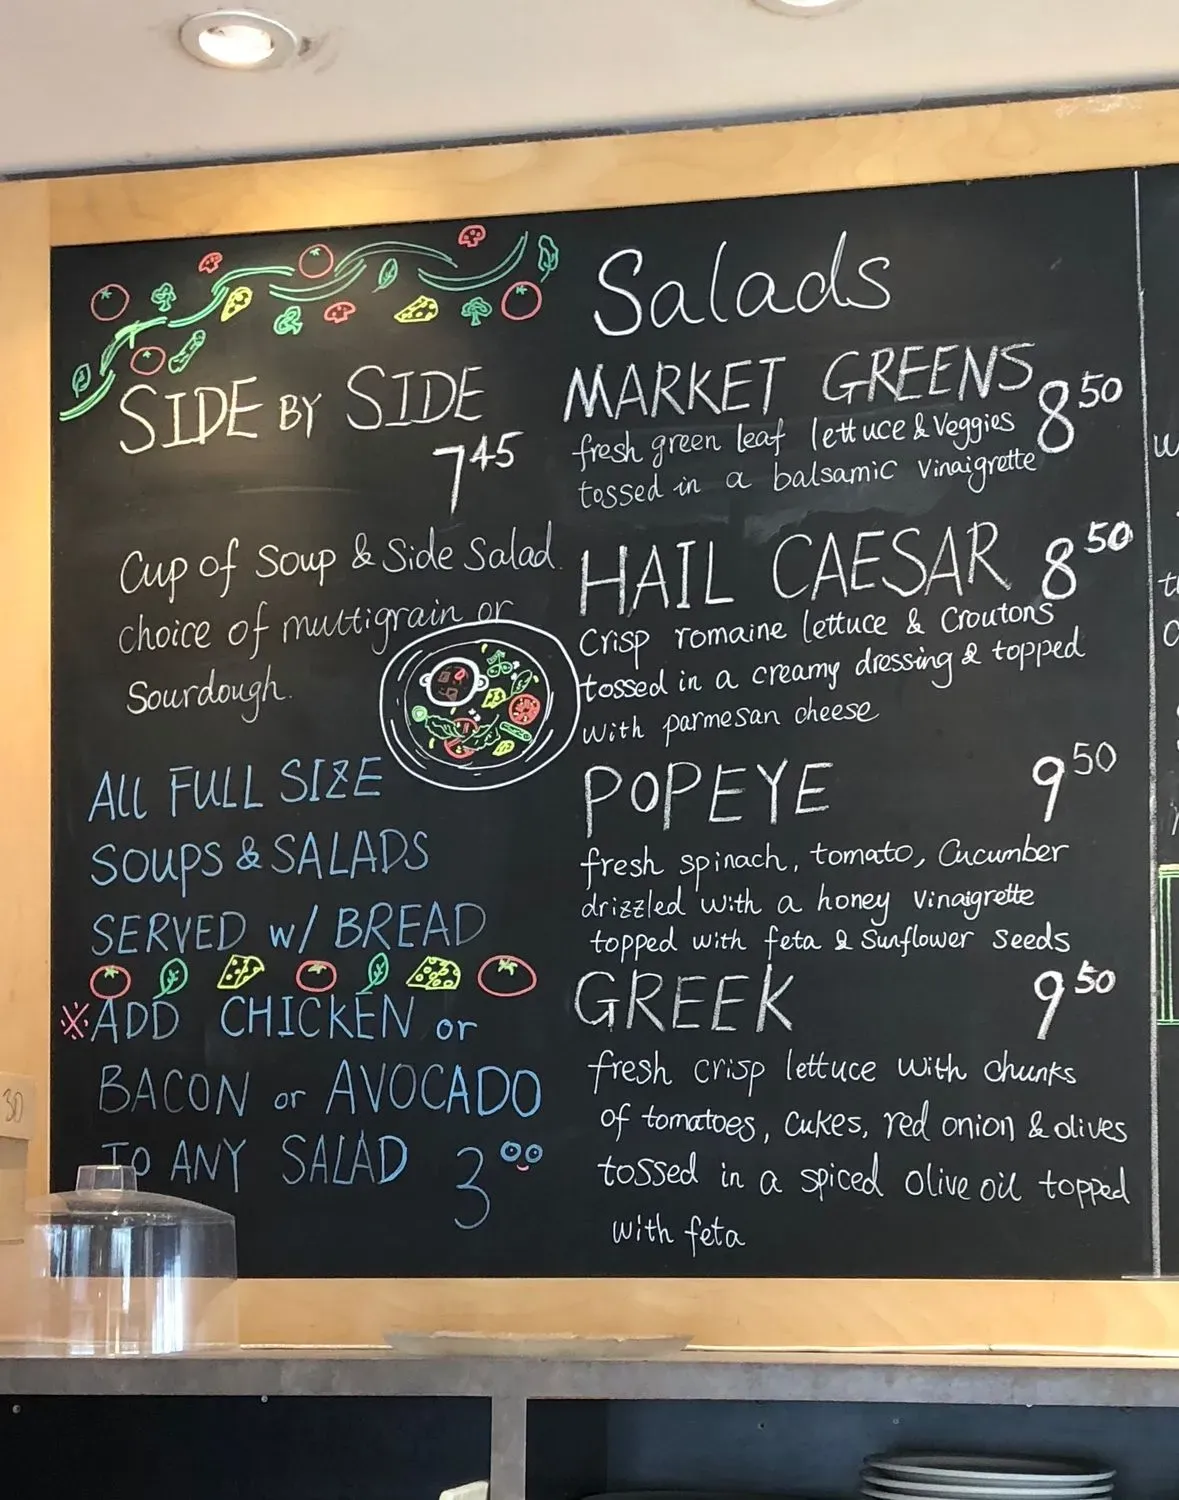 SIDE BY SIDE
7.45
Cup of Soup & Side Salad.
choice of multigrain or
Sourdough.
ALL FULL SIZE
SOUPS & SALADS
SERVED w/ BREAD
※ADD CHICKEN or
BACON or AVOCADO
TO ANY SALAD 3 00
Salads
MARKET GREENS 8 50
fresh green leaf lettuce & Veggies
tossed in a balsamic vinaigrette
HAIL CAESAR 8 50
Crisp romaine lettuce & Croutons
tossed in a creamy dressing & topped
with parmesan cheese
POPEYE 9 50
fresh spinach, tomato, Cucumber
drizzled with a honey vinaigrette
topped with feta & Sunflower seeds
GREEK 9 50
fresh crisp lettuce with chunks
of tomatoes, cukes, red onion & olives
tossed in a spiced olive oil topped
with feta
30